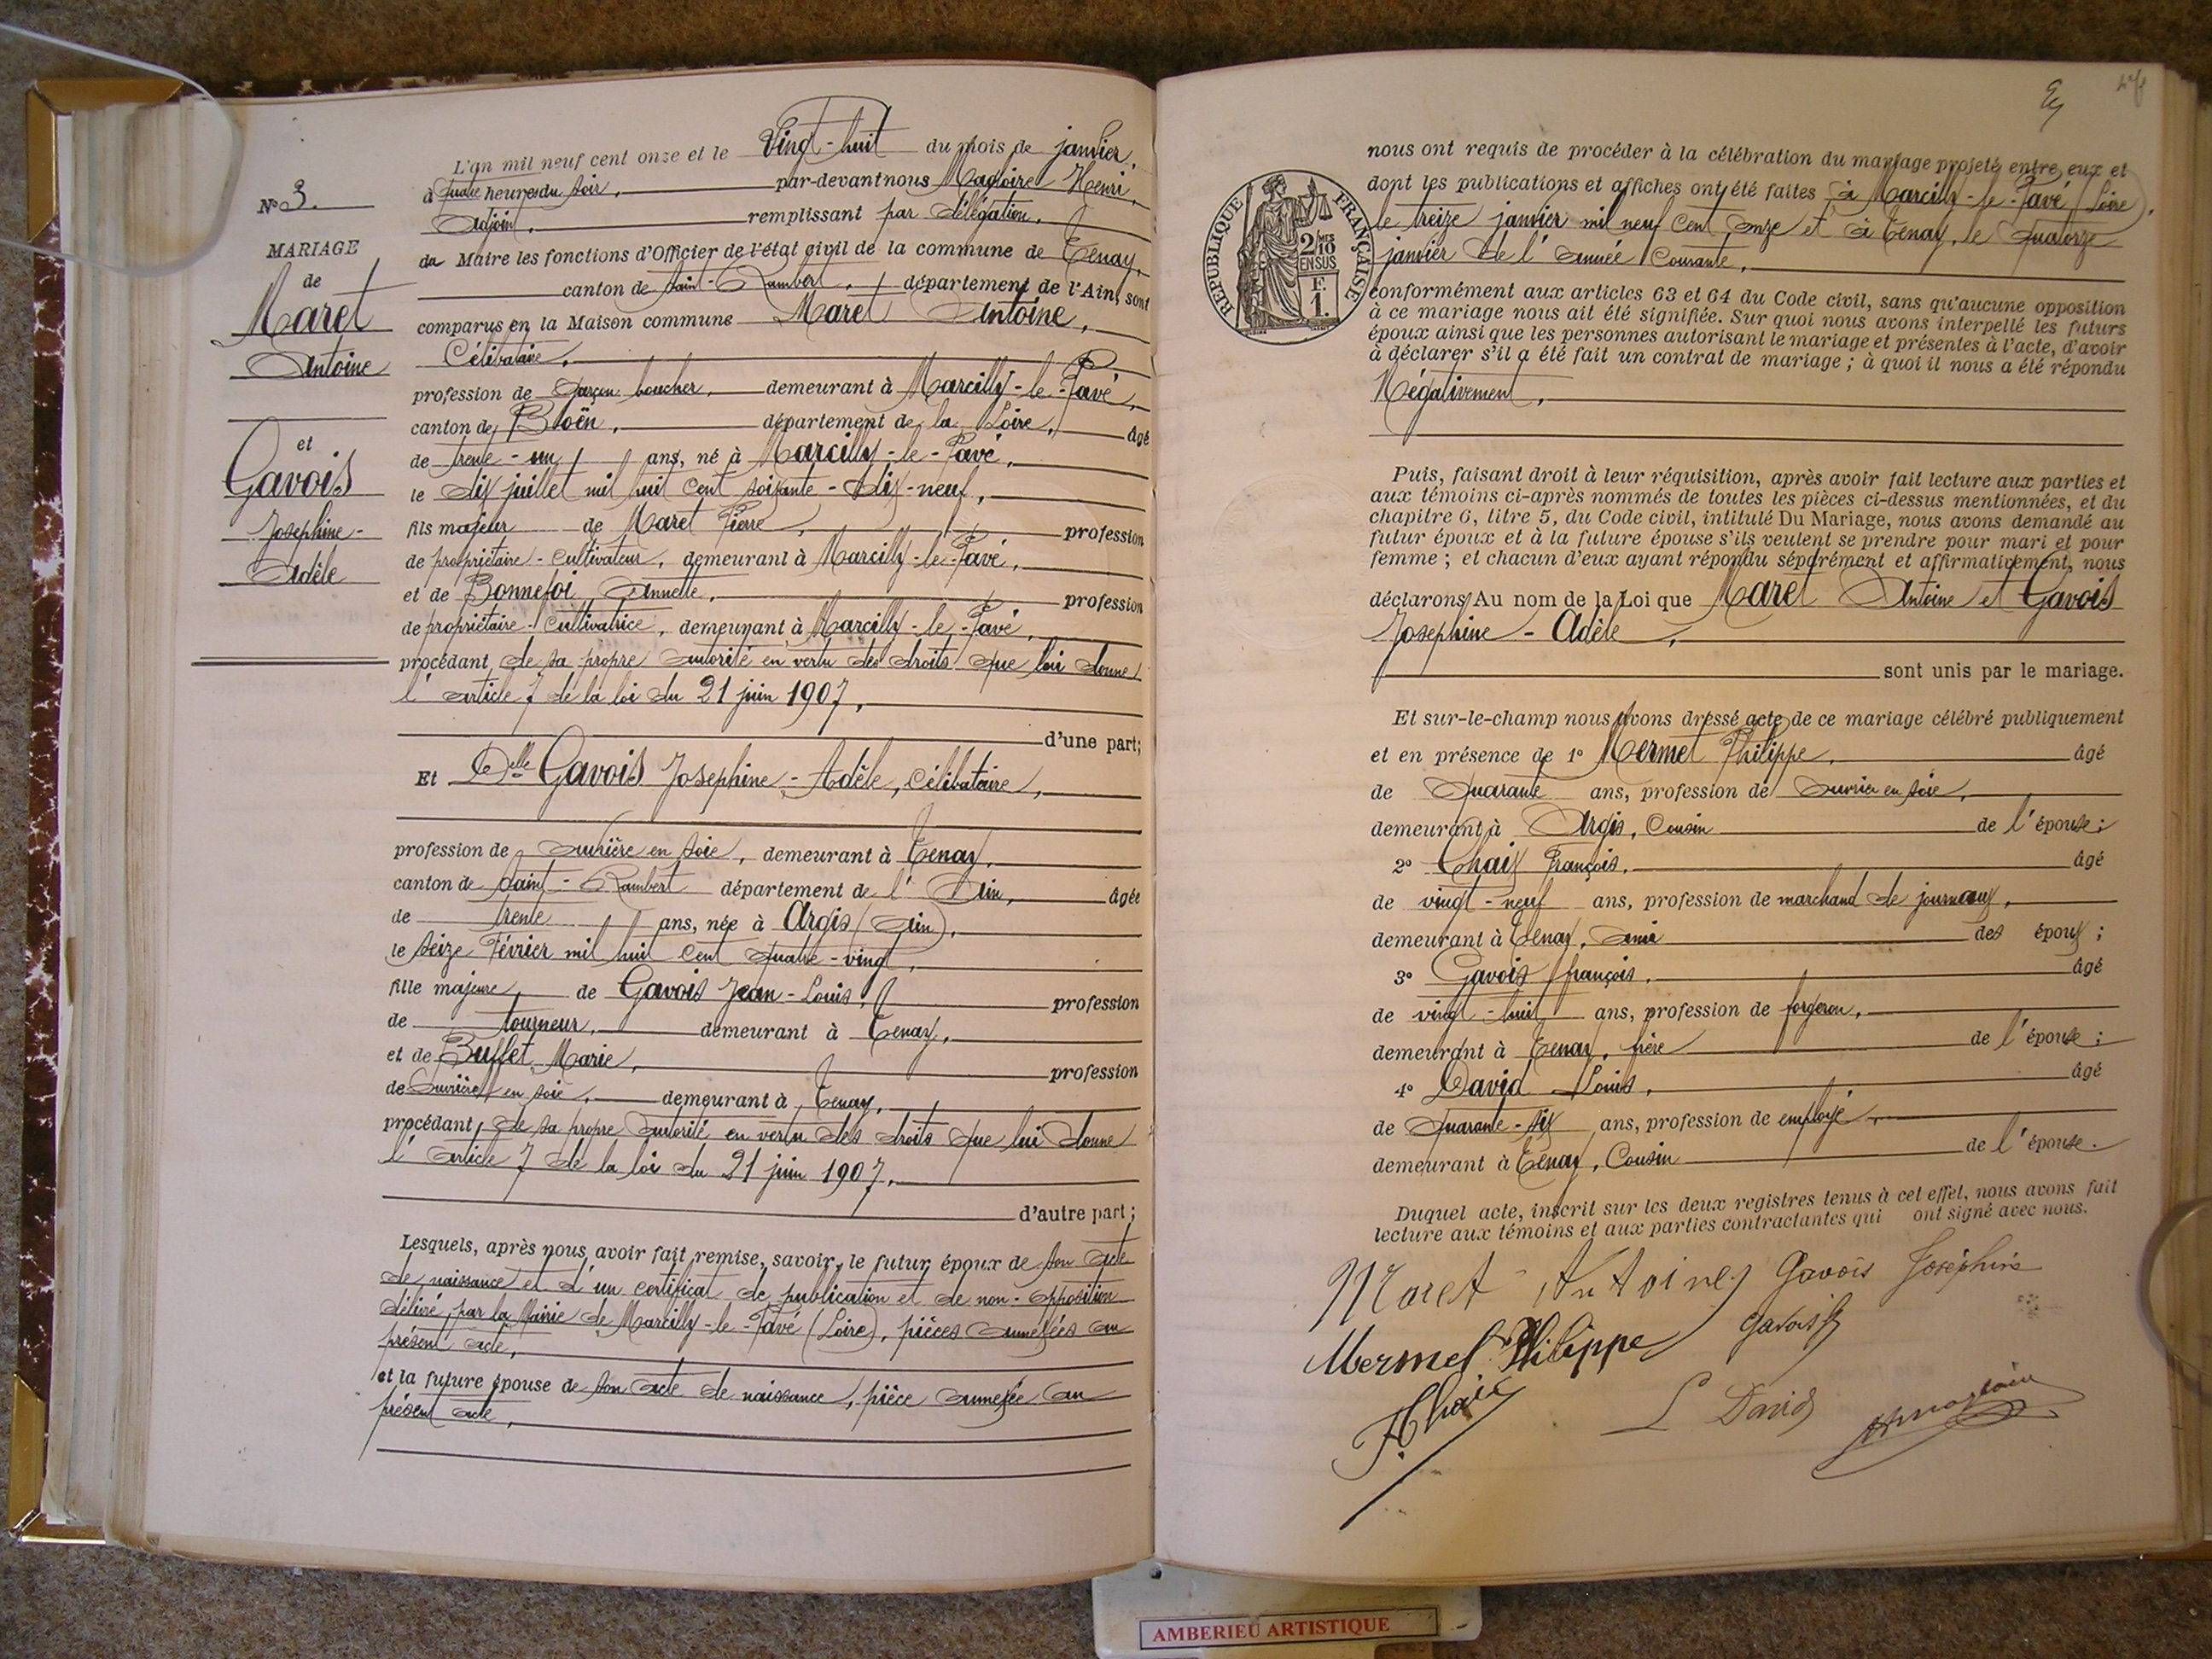 L'an mil neuf cent onze et le Vingt-huit du mois de janvier,
à quatre heures du soir, par-devant nous Magloire Henri,
Adjoint, remplissant par délégation,
du Maire les fonctions d'Officier de l'état civil de la commune de Tenay,
canton de Saint-Rambert, département de l'Ain, sont
comparus en la Maison commune Maret Antoine,
Célibataire,
profession de garçon boucher, demeurant à Marcilly-le-Pavé,
canton de Boën, département de la Loire, âgé
de trente-un ans, né à Marcilly-le-Pavé,
le dix juillet mil huit cent soixante-dix-neuf,
fils majeur de Maret Pierre, profession
de propriétaire-cultivateur, demeurant à Marcilly-le-Pavé,
et de Bonnefoi Annette, profession
de propriétaire-cultivatrice, demeurant à Marcilly-le-Pavé,
procédant de sa propre autorité en vertu des droits que lui donne
l'article 7 de la loi du 21 juin 1907,
d'une part;
Et Delle Gavois Josephine-Adèle, célibataire,
profession de ouvrière en soie, demeurant à Tenay,
canton de Saint-Rambert département de l'Ain, âgée
de trente ans, née à Argis (Ain),
le seize Février mil huit cent quatre-vingt,
fille majeure de Gavois Jean-Louis, profession
de tourneur, demeurant à Tenay,
et de Buffet Marie, profession
de ouvrière en soie, demeurant à Tenay,
procédant, de sa propre autorité en vertu des droits que lui donne
l'article 7 de la loi du 21 juin 1907,
d'autre part;
Lesquels, après nous avoir fait remise, savoir, le futur époux de son acte
de naissance et d'un certificat de publication et de non-opposition
délivré par la Mairie de Marcilly-le-Pavé (Loire), pièces annexées au
présent acte,
et la future épouse de son acte de naissance, pièce annexée au
présent acte,
No 3.
MARIAGE
de
Maret
Antoine
et
Gavois
Josephine-
Adèle
nous ont requis de procéder à la célébration du mariage projeté entre eux et
dont les publications et affiches ont été faites à Marcilly-le-Pavé (Loire),
le treize janvier mil neuf cent onze et à Tenay, le quatorze
janvier de l'année courante,
RÉPUBLIQUE FRANÇAISE
2/10 MES
EN SUS
F.
1.
conformément aux articles 63 et 64 du Code civil, sans qu'aucune opposition
à ce mariage nous ait été signifiée. Sur quoi nous avons interpellé les futurs
époux ainsi que les personnes autorisant le mariage et présentes à l'acte, d'avoir
à déclarer s'il a été fait un contrat de mariage ; à quoi il nous a été répondu
Négativement,
Puis, faisant droit à leur réquisition, après avoir fait lecture aux parties et
aux témoins ci-après nommés de toutes les pièces ci-dessus mentionnées, et du
chapitre 6, titre 5, du Code civil, intitulé Du Mariage, nous avons demandé au
futur époux et à la future épouse s'ils veulent se prendre pour mari et pour
femme ; et chacun d'eux ayant répondu séparément et affirmativement, nous
déclarons Au nom de la Loi que Maret Antoine et Gavois
Josephine-Adèle,
sont unis par le mariage.
Et sur-le-champ nous avons dressé acte de ce mariage célébré publiquement
et en présence de 1° Mermet Philippe, âgé
de Quarante ans, profession de ouvrier en soie,
demeurant à Argis, Cousin de l'épouse;
2° Chaix François, âgé
de vingt-neuf ans, profession de marchand de journaux,
demeurant à Tenay, ami des époux;
3° Gavois françois, âgé
de vingt-huit ans, profession de forgeron,
demeurant à Tenay, frère de l'épouse;
4° David Louis, âgé
de quarante-six ans, profession de employé,
demeurant à Tenay, Cousin de l'épouse.
Duquel acte, inscrit sur les deux registres tenus à cet effet, nous avons fait
lecture aux témoins et aux parties contractantes qui ont signé avec nous.
Maret Antoine Gavois Joséphine
Mermet Philippe Gavois f
F. Chaix L David Hmagloire
AMBERIEU ARTISTIQUE